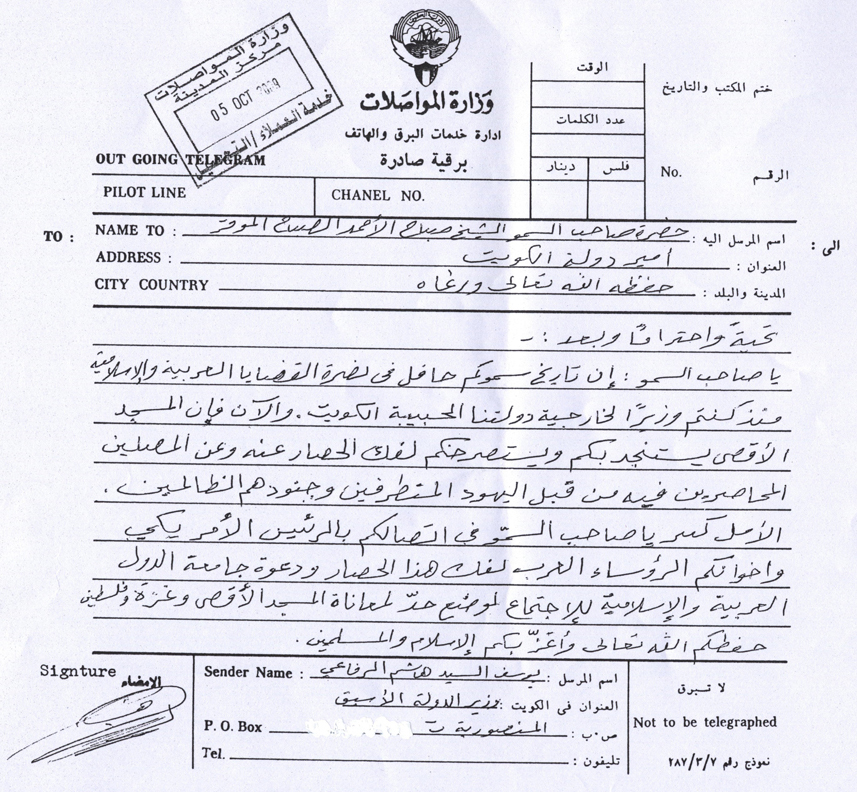 وزارة المواصلات
مركز المدينة
05 OCT 2009
خدمة العملاء/
وزارة المواصلات
ادارة خدمات البرق والهاتف
برقية صادرة
OUT GOING TELEGRAM
الوقت
عدد الكلمات
دينار فلس
ختم المكتب والتاريخ
No. الرقم
PILOT LINE CHANEL NO.
TO : NAME TO : حضرة صاحب السمو الشيخ صباح الأحمد الصباح الموقر اسم المرسل اليه : الى :
ADDRESS : امير دولة الكويت العنوان :
CITY COUNTRY حفظه الله تعالى ورعاه المدينة والبلد :
تحيةً واحترامًا وبعد : -
يا صاحب السمو : إن تاريخ سموكم حافل في نصرة القضايا العربية والإسلامية
منذ كنتم وزيرًا لخارجية دولتنا الحبيبة الكويت . والآن فإن المسجد
الأقصى يستنجد بكم ويستصرخكم لفك الحصار عنه وعن المصلين
المحاصرين فيه من قبل اليهود المتطرفين وجنودهم الظالمين .
الأمل كبير يا صاحب السمو في اتصالكم بالرئيس الأمريكي
واخوانكم الرؤساء العرب لفك هذا الحصار ودعوة جامعة الدول
العربية والإسلامية للإجتماع لوضع حدّ لمعاناة المسجد الأقصى وغزة وفلسطين
حفظكم الله تعالى وأعزّ بكم الإسلام والمسلمين .
Signture الامضاء
Sender Name : يوسف السيد هاشم الرفاعي اسم المرسل :
وزير الدولة الأسبق العنوان في الكويت :
P. O. Box المنصورية ص.ب :
Tel. تليفون :
لا تبرق
Not to be telegraphed
نموذج رقم ٢٨٧/٣/٧